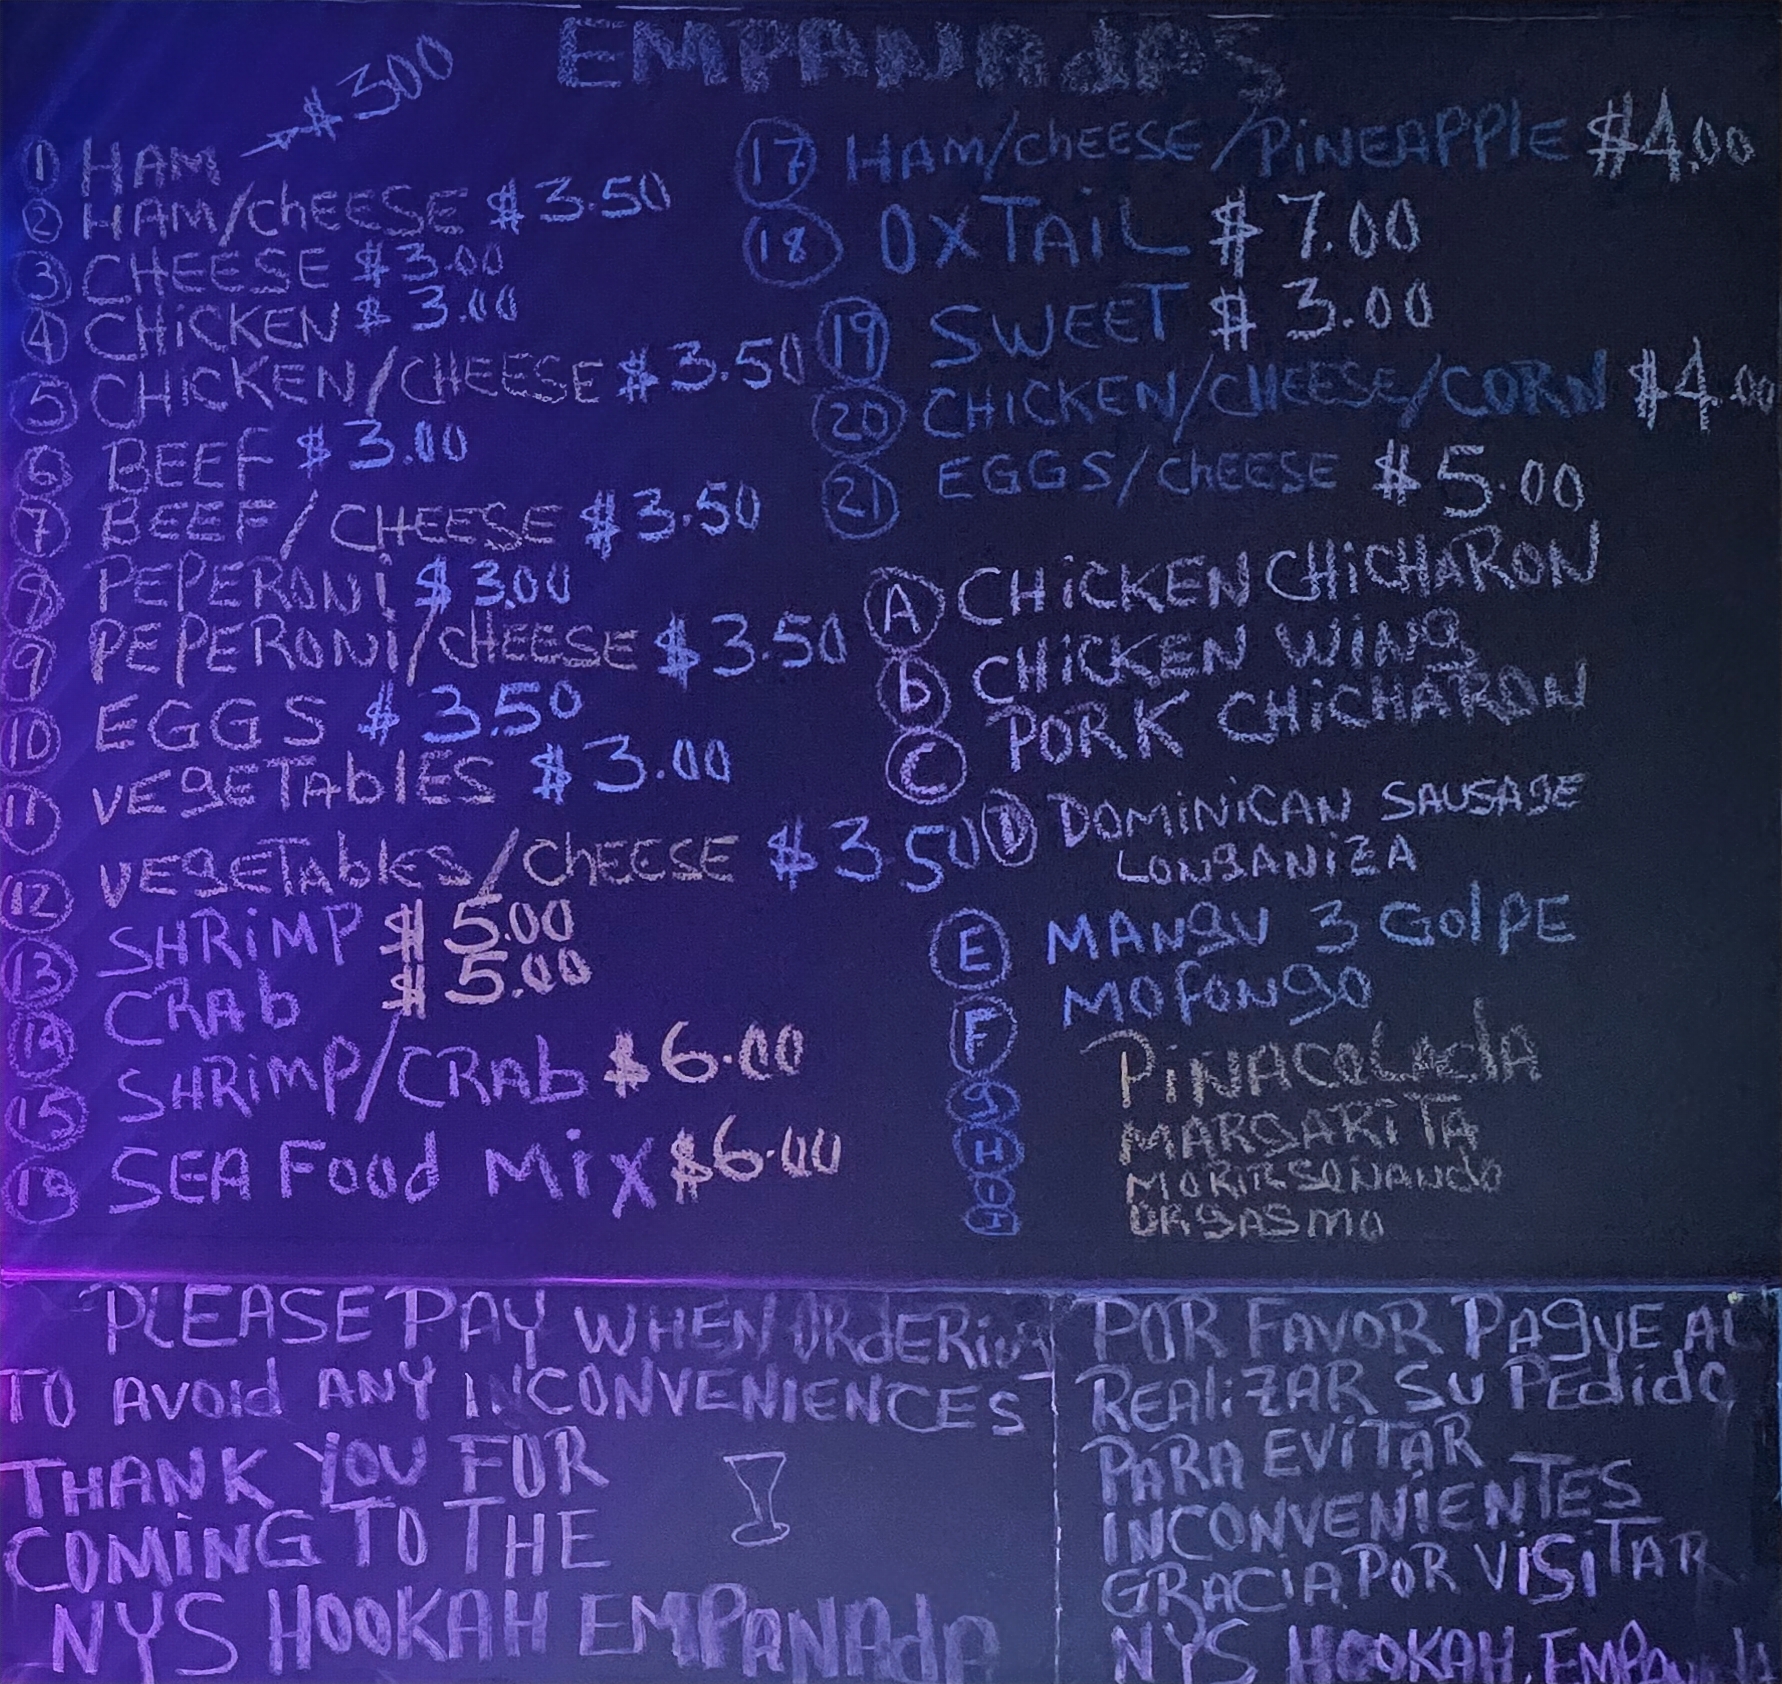 EMPANAdAS
1 HAM → $300
2 HAM/ChEESE $3.50
3 CHEESE $3.00
4 CHiCKEN $3.00
5 CHiCKEN/CHEESE $3.50
6 BEEF $3.00
7 BEEF/CHEESE $3.50
8 PEPERONi $3.00
9 PEPERONi/cHEESE $3.50
10 EGGS $3.50
11 VEgETAblES $3.00
12 VEgETAblEs/ChEESE $3.50
13 SHRiMP $5.00
14 CRAb $5.00
15 SHRiMP/CRAb $6.00
16 SEA Food Mix $6.00
17 HAM/chEESE/PiNEAPPlE $4.00
18 OXTAiL $7.00
19 SWEET $3.00
20 CHiCKEN/CHEESE/CORN $4.00
21 EGGS/ChEESE $5.00
A CHiCKEN CHiCHARON
b CHiCKEN WiNg
C PORK CHiCHARON
D DOMiNiCAN SAUSAgE
LONgANiZA
E MANgU 3 GolPE
F MOfONgO
g PiNACOLAdA
H MARgARiTA
I MORiRSOÑANdO
J ORgASMO
PLEASE PAY WHEN ORdERiNg
TO AVOid ANY INCONVENIENCES
THANK YOU FOR
COMiNG TO THE
NYS HOOKAH EMPANAdA
POR FAVOR PAgUE AL
REALiZAR SU PEdidO
PARA EViTAR
INCONVENiENTES
GRACiA POR ViSiTAR
NYS HOOKAH EMPANAdA